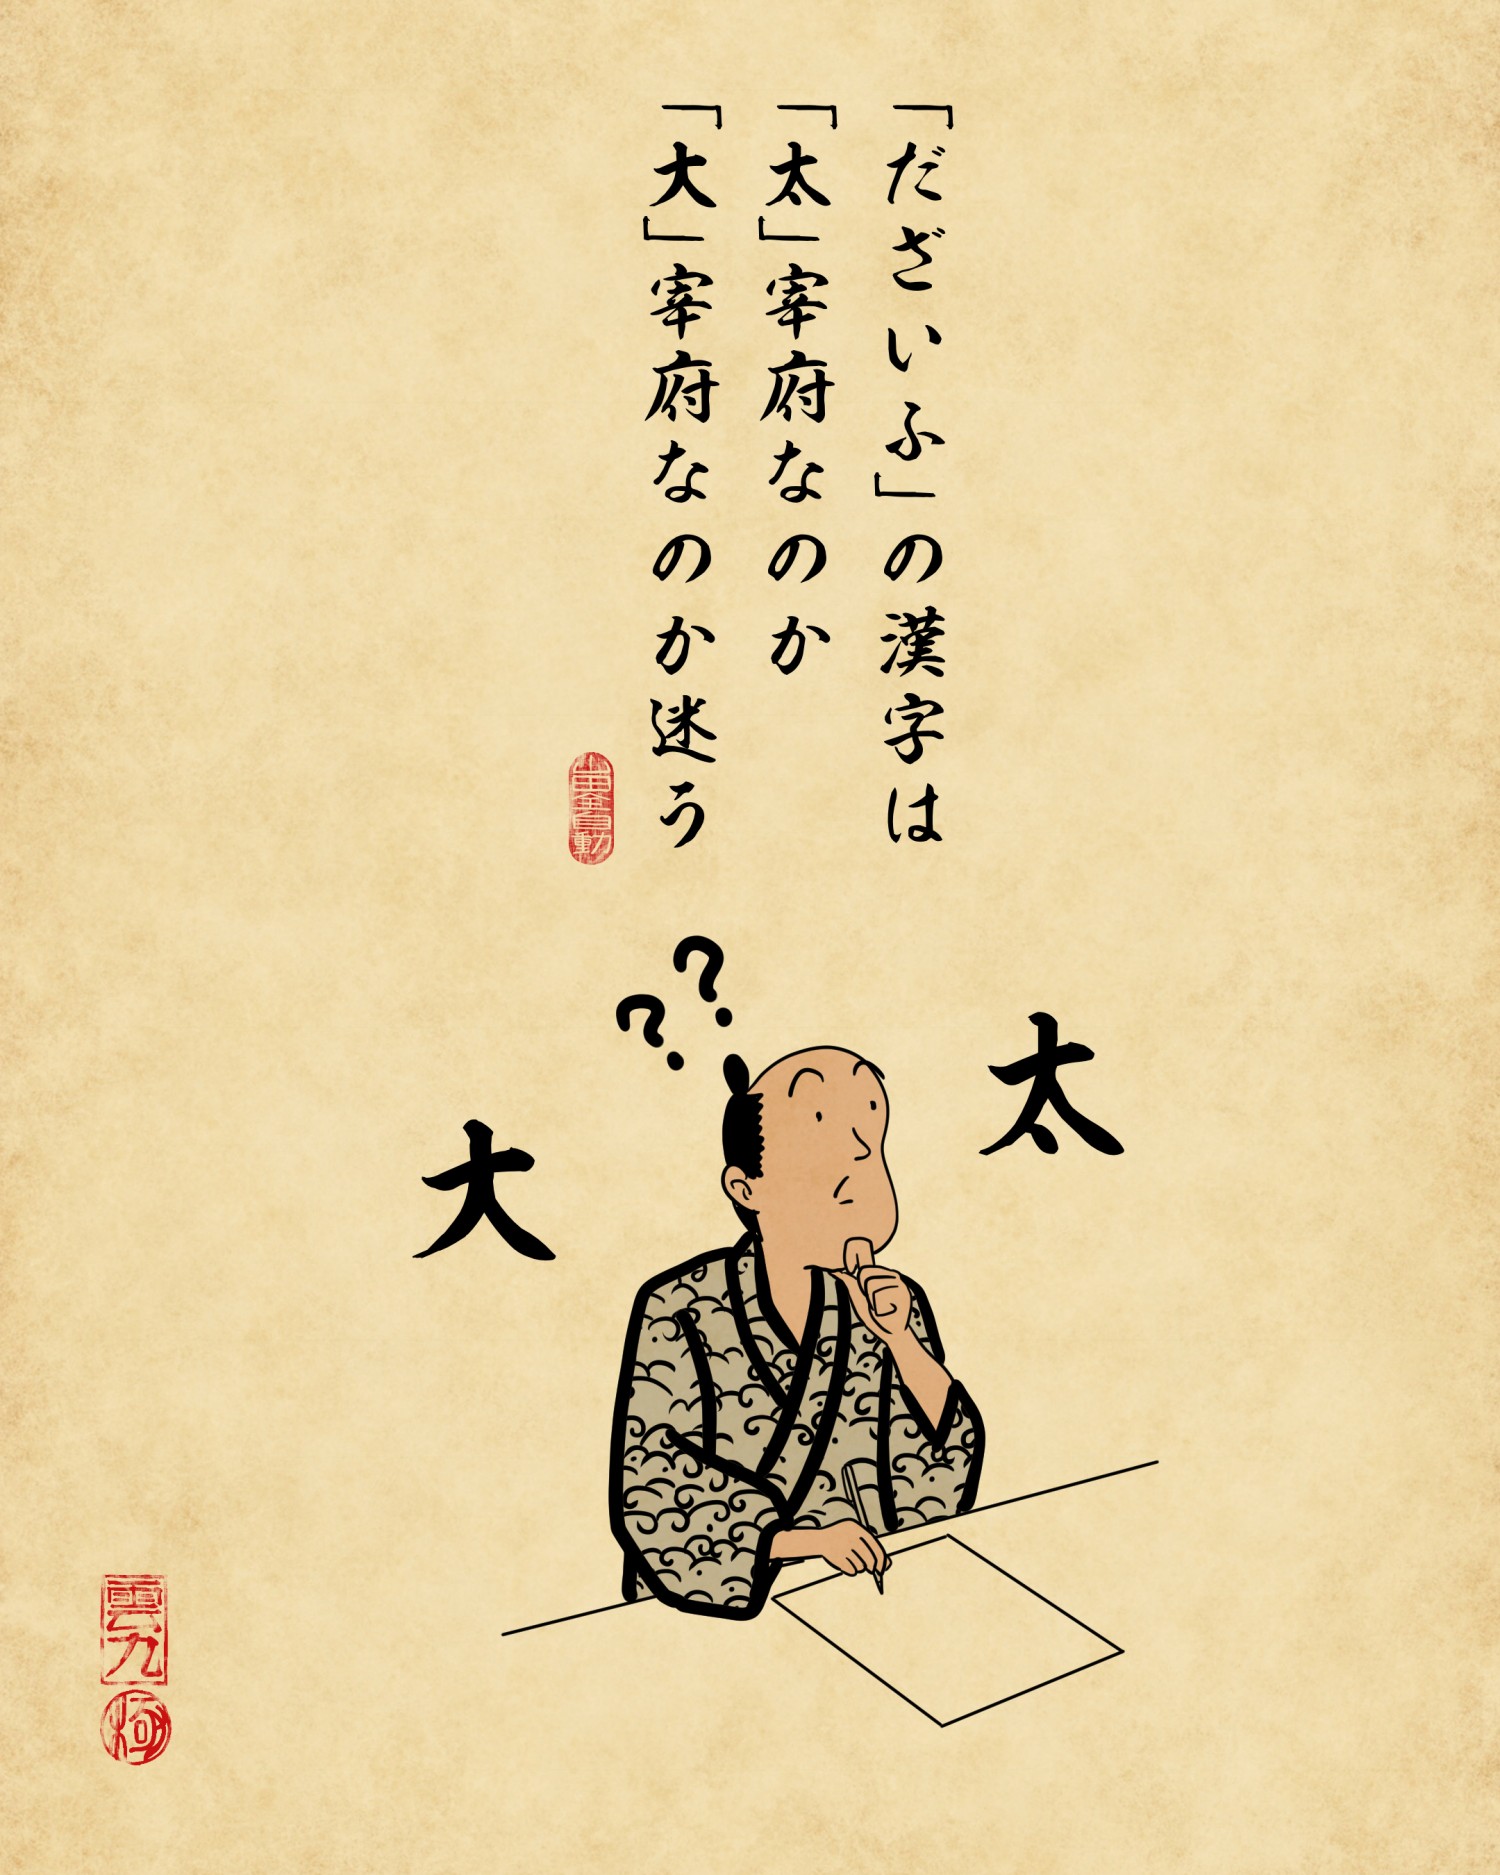 「だざいふ」の漢字は
「太」宰府なのか
「大」宰府なのか迷う
??
太
大
雲九
極